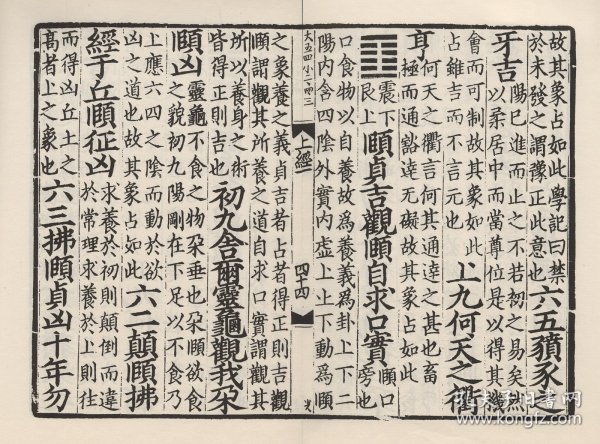 故其象占如此學記曰禁
於未發之謂豫正此意也
六五豶豕之
牙吉
陽已進而止之不若初之易矣然
以柔居中而當尊位是以得其機
會而可制故其象如此
占雖吉而不言元也
上九何天之衢
亨
何天之衢言何其通逹之甚也畜
極而通豁逹无礙故其象占如此
䷚
震下
艮上
頤貞吉觀頤自求口實
頤口
旁也
口食物以自養故爲養義爲卦上下二
陽內含四陰外實內虛上止下動爲頤
大五四小
上經
四十四
之象養之義貞吉者占者得正則吉觀
頤謂觀其所養之道自求口實謂觀其
所以養身之術
皆得正則吉也
初九舍爾靈龜觀我朵
頤凶
靈龜不食之物朵垂也朵頤欲食
之貌初九陽剛在下足以不食乃
上應六四之陰而動於欲
凶之道也故其象占如此
六二顛頤拂
經于丘頤征凶
求養於初則顛倒而違
於常理求養於上則往
而得凶丘土之
高者上之象也
六三拂頤貞凶十年勿